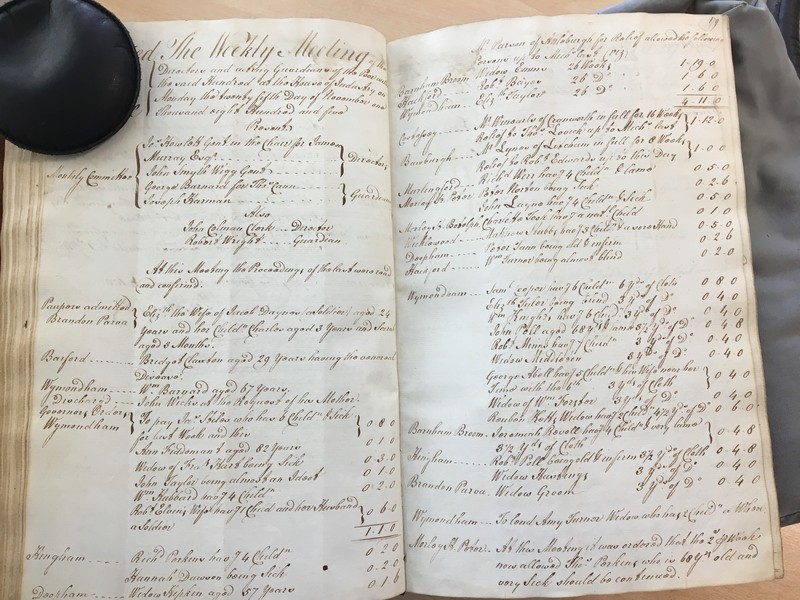 ted The Weekly Meeting of the
Directors and acting Guardians of the Poor in
the said Hundred at the House of Industry on
Monday the twenty fifth Day of November one
thousand eight Hundred and five
Present
Jas. Howlett Gent in the Chair for James
Murray Esqr.
John Smyth Wigg Gent
Directors
Monthly Committee
George Barnard for Thos. Cann
Joseph Harman
Guardians
Also
John Colman Clark Director
Robert Wright Guardian
At this Meeting the Proceedings of the last were read
and confirmed.
Paupers admitted
Brandon Parva
Elizth. the Wife of Jacob Daynes (a Soldier) aged 24
Years and her Childn. Charles aged 3 Years and
aged 8 Months.
Barford Bridget Clayton aged 29 Years having the venereal
disease.
Wymondham Wm. Barnard aged 67 Years.
Discharged John Wicks at the Request of his Mother.
Governors Orders
Wymondham
To pay Jas. Stileo who has 6 Childn. & Sick
for last Week and this 0 8 0
Ann Fiddeman aged 82 Years 0 1 0
Widow of Fras. Hurt being Sick 0 3 0
John Taylor being almost an Ideot 0 1 0
Wm. Hubbard has 4 Childn. 0 2 0
Robt. Elvins Wife has 1 Child and her Husband
a Soldier 0 6 0
1 1 0
Hingham Richd. Perkins has 4 Childn. 0 2 0
Hannah Dawson being Sick 0 2 0
Deopham Widow Kipkin aged 57 Years 0 1 6
59
Mr. Parson of Attleburgh for Relief allowed the following
Persons up to Michs. last (viz)
Barnham Broom Widow Emms 26 Weeks 1 19 0
Hackford Robt. Bayes 26 Do. 1 6 0
Wymondham Elizth. Taylor 26 Do. 1 6 0
4 11 0
Costessey Mr. of Cranworth in full for 16 Weeks
Relief to Thos. up to Michs. last 1 12 0
Bawburgh Mr. Lynes of Lexham in full for 8 Weeks
Relief to Robt. Edwards up to this Day 1 0 0
Marlingford Richd. Wier has 4 Childn. & Lame 0 5 0
Morley St. Peter Peter Norton being Sick 0 2 6
John Layno has 4 Childn. & Sick 0 5 0
Morley St. Botolph Charlotte Took has a natl. Child 0 1 0
Wicklewood Stubbs has 3 Childn. & a sore Hand 0 5 0
Deopham Peter Lann being old & infirm 0 2 6
Hackford Wm. Turner being almost blind 0 2 0
Wymondham Saml. Cooper has 6 Childn. 6 yds. of Cloth 0 8 0
Elizth. Tuter being blind 3 yds. of Do. 0 4 0
Wm. Knights has 6 Childn. 3 yds. of Do. 0 4 0
John Poll aged 68 & his 3½ yds. of Do. 0 4 8
Robt. Minns has 7 Childn. 3 yds. of Do. 0 4 0
Widow Middleton 3 yds. of Do. 0 4 0
George Abell has 5 Childn. & his Wife near her
Time with the 6th. 3 yds. of Cloth 0 4 0
Widow of Wm. Forster 3 yds. of Do. 0 4 0
Reuben Hall's Widow has 2 Childn. 4½ yds. of Do. 0 6 0
Barnham Broom Jeremiah has 4 Childn. & very lame
3½ yds. of Cloth 0 4 8
Hingham Robt. Poll being old & infirm 3½ yds. of Cloth 0 4 8
Widow Hawkings 3 yds. of Do. 0 4 0
Brandon Parva Widow Groom 3 yds. of Do. 0 4 0
Wymondham To lend Amy Turner Widow who has 2 Childn. a Wheel
Morley St. Peter At this Meeting it was ordered that the 2s. per Week
now allowed Thos. Perkins who is 68 Yrs. old and
very Sick should be continued.